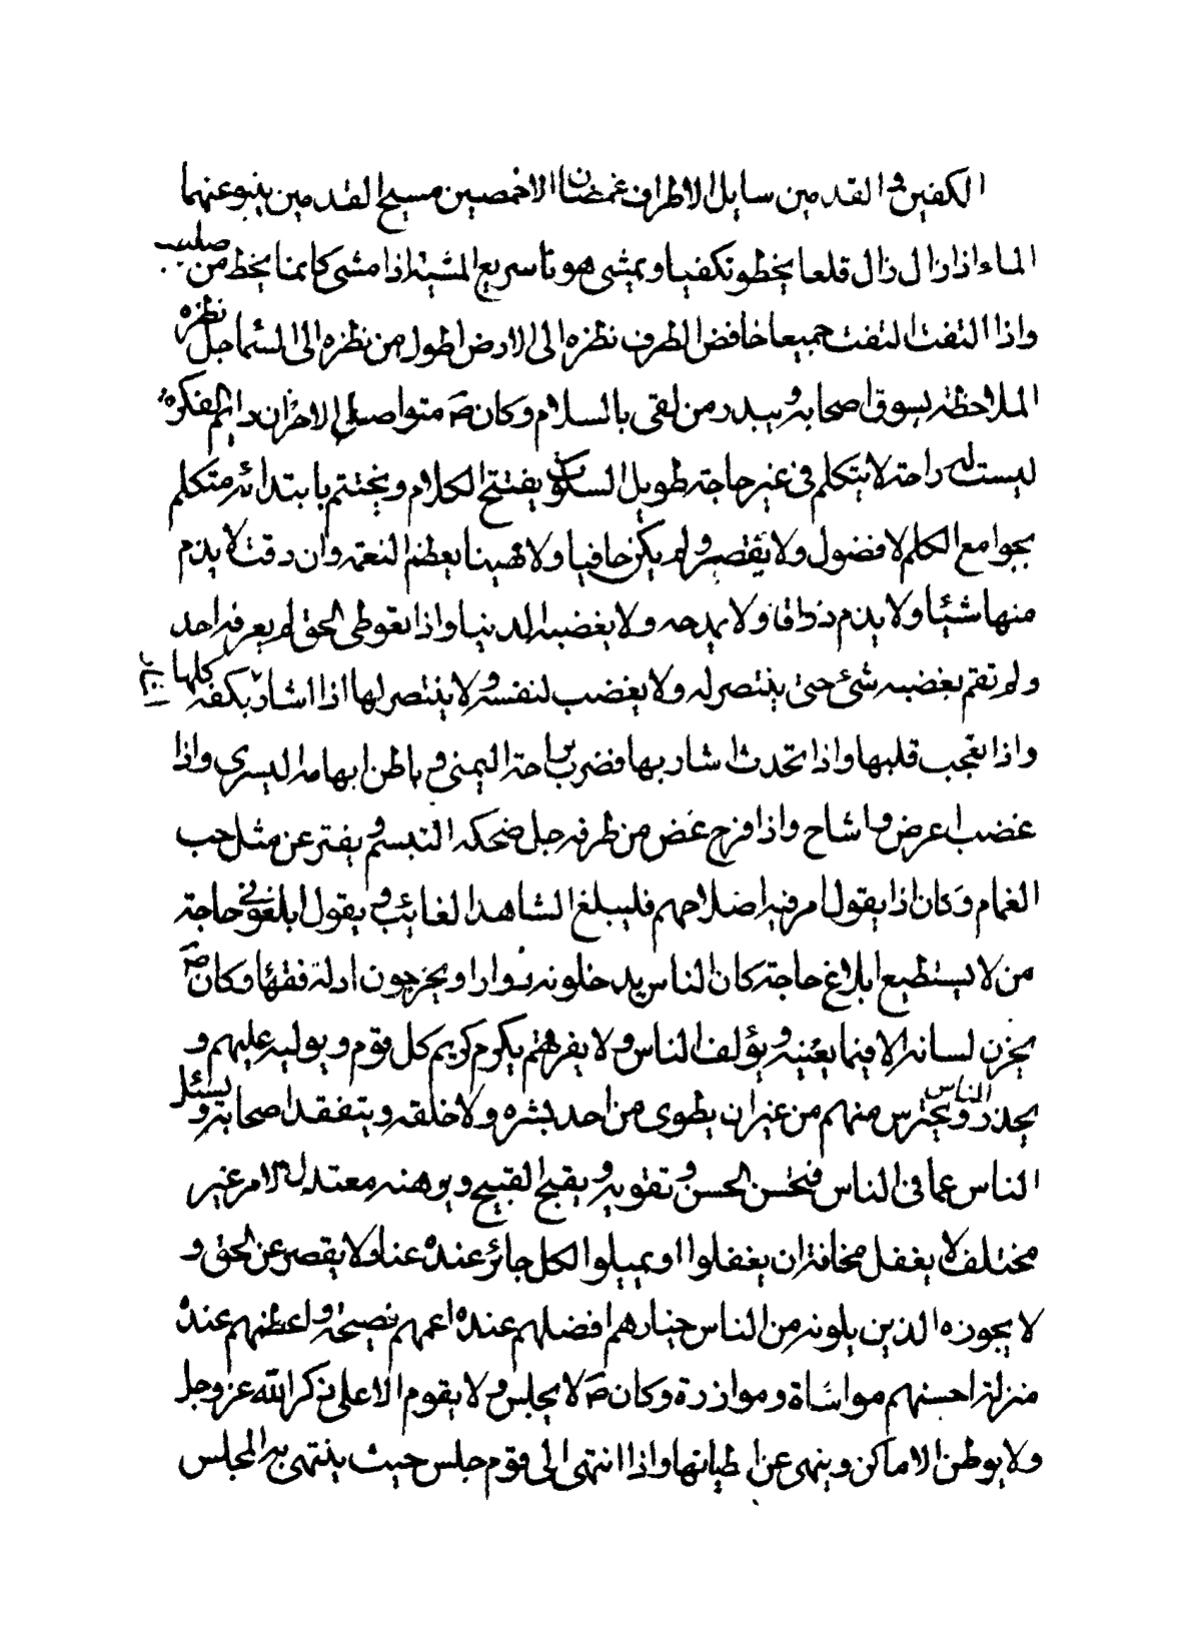 الكفين و القدمين سايل الاطراف غمضان الاخمصين مسيح القدمين ينبو عنهما
الماء اذا زال زال قلعا يخطو تكفيا ويمشى هونا سريع المشية اذا مشى كانما ينحط من صلبب
واذا التفت التفت جميعا خافض الطرف نظره الى الارض اطول من نظره الى السماء جل نظره
الملاحظة يسوق اصحابه و يبدر من لقى بالسلام وكان ص متواصل الاحزان دايم الفكره
ليست له راحة لا يتكلم فى غير حاجة طويل السكوت يفتتح الكلام ويختتم بابتدائه متكلم
بجوامع الكلم لا فضول ولا تقصير و لم يكن جافيا ولا مهينا يعظم النعمة وان دقت لا يذم
منها شئيا ولا يذم ذواقا ولا يمدحه ولا يغضبه الدنيا واذا تعوطى الحق لم يعرفه احد
ولم تقم بغضبه شئ حتى ينتصر له ولا يغضب لنفسه و لا ينتصر لها اذا اشار بكفه كلها
واذا تعجب قلبها واذا تحدث اشار بها فضرب براحة اليمنى فى باطن ابهامه اليسرى واذا
غضب اعرض و اشاح واذا فرح غض من طرفه جل ضحكه التبسم و يفتر عن مثل حب
الغمام وكان اذا يقول امر فيه اصلاحهم فليبلغ الشاهد الغائب و يقول ابلغونى حاجة
من لا يستطيع ابلاغ حاجة كان الناس يدخلونه زوارا ويخرجون ادلة فقها وكان ص
يخزن لسانه الا فيما يعنيه و يؤلف الناس و لا يفرقهم يكرم كريم كل قوم ويوليه عليهم و
يحذر الناس و يحترس منهم من غير ان يطوى من احد بشره ولا خلقه ويتفقد اصحابه و يسئل
الناس عما فى الناس فيحسن الحسن و تقويه و يقبح القبيح ويوهنه معتدل الامر غير
مختلف لا يغفل مخافة ان يغفلوا او يميلوا لكل جائز عنده عناد ولا يقصر عن الحق و
لا يجوزه الذين يلونه من الناس خيارهم افضلهم عنده اعمهم نصيحة و اعظمهم عنده
منزلة احسنهم مواساة وموازرة وكان ص لا يجلس و لا يقوم الا على ذكر الله عز وجل
ولا يوطن الاماكن وينهى عن ايطانها واذا انتهى الى قوم جلس حيث ينتهى به المجلس